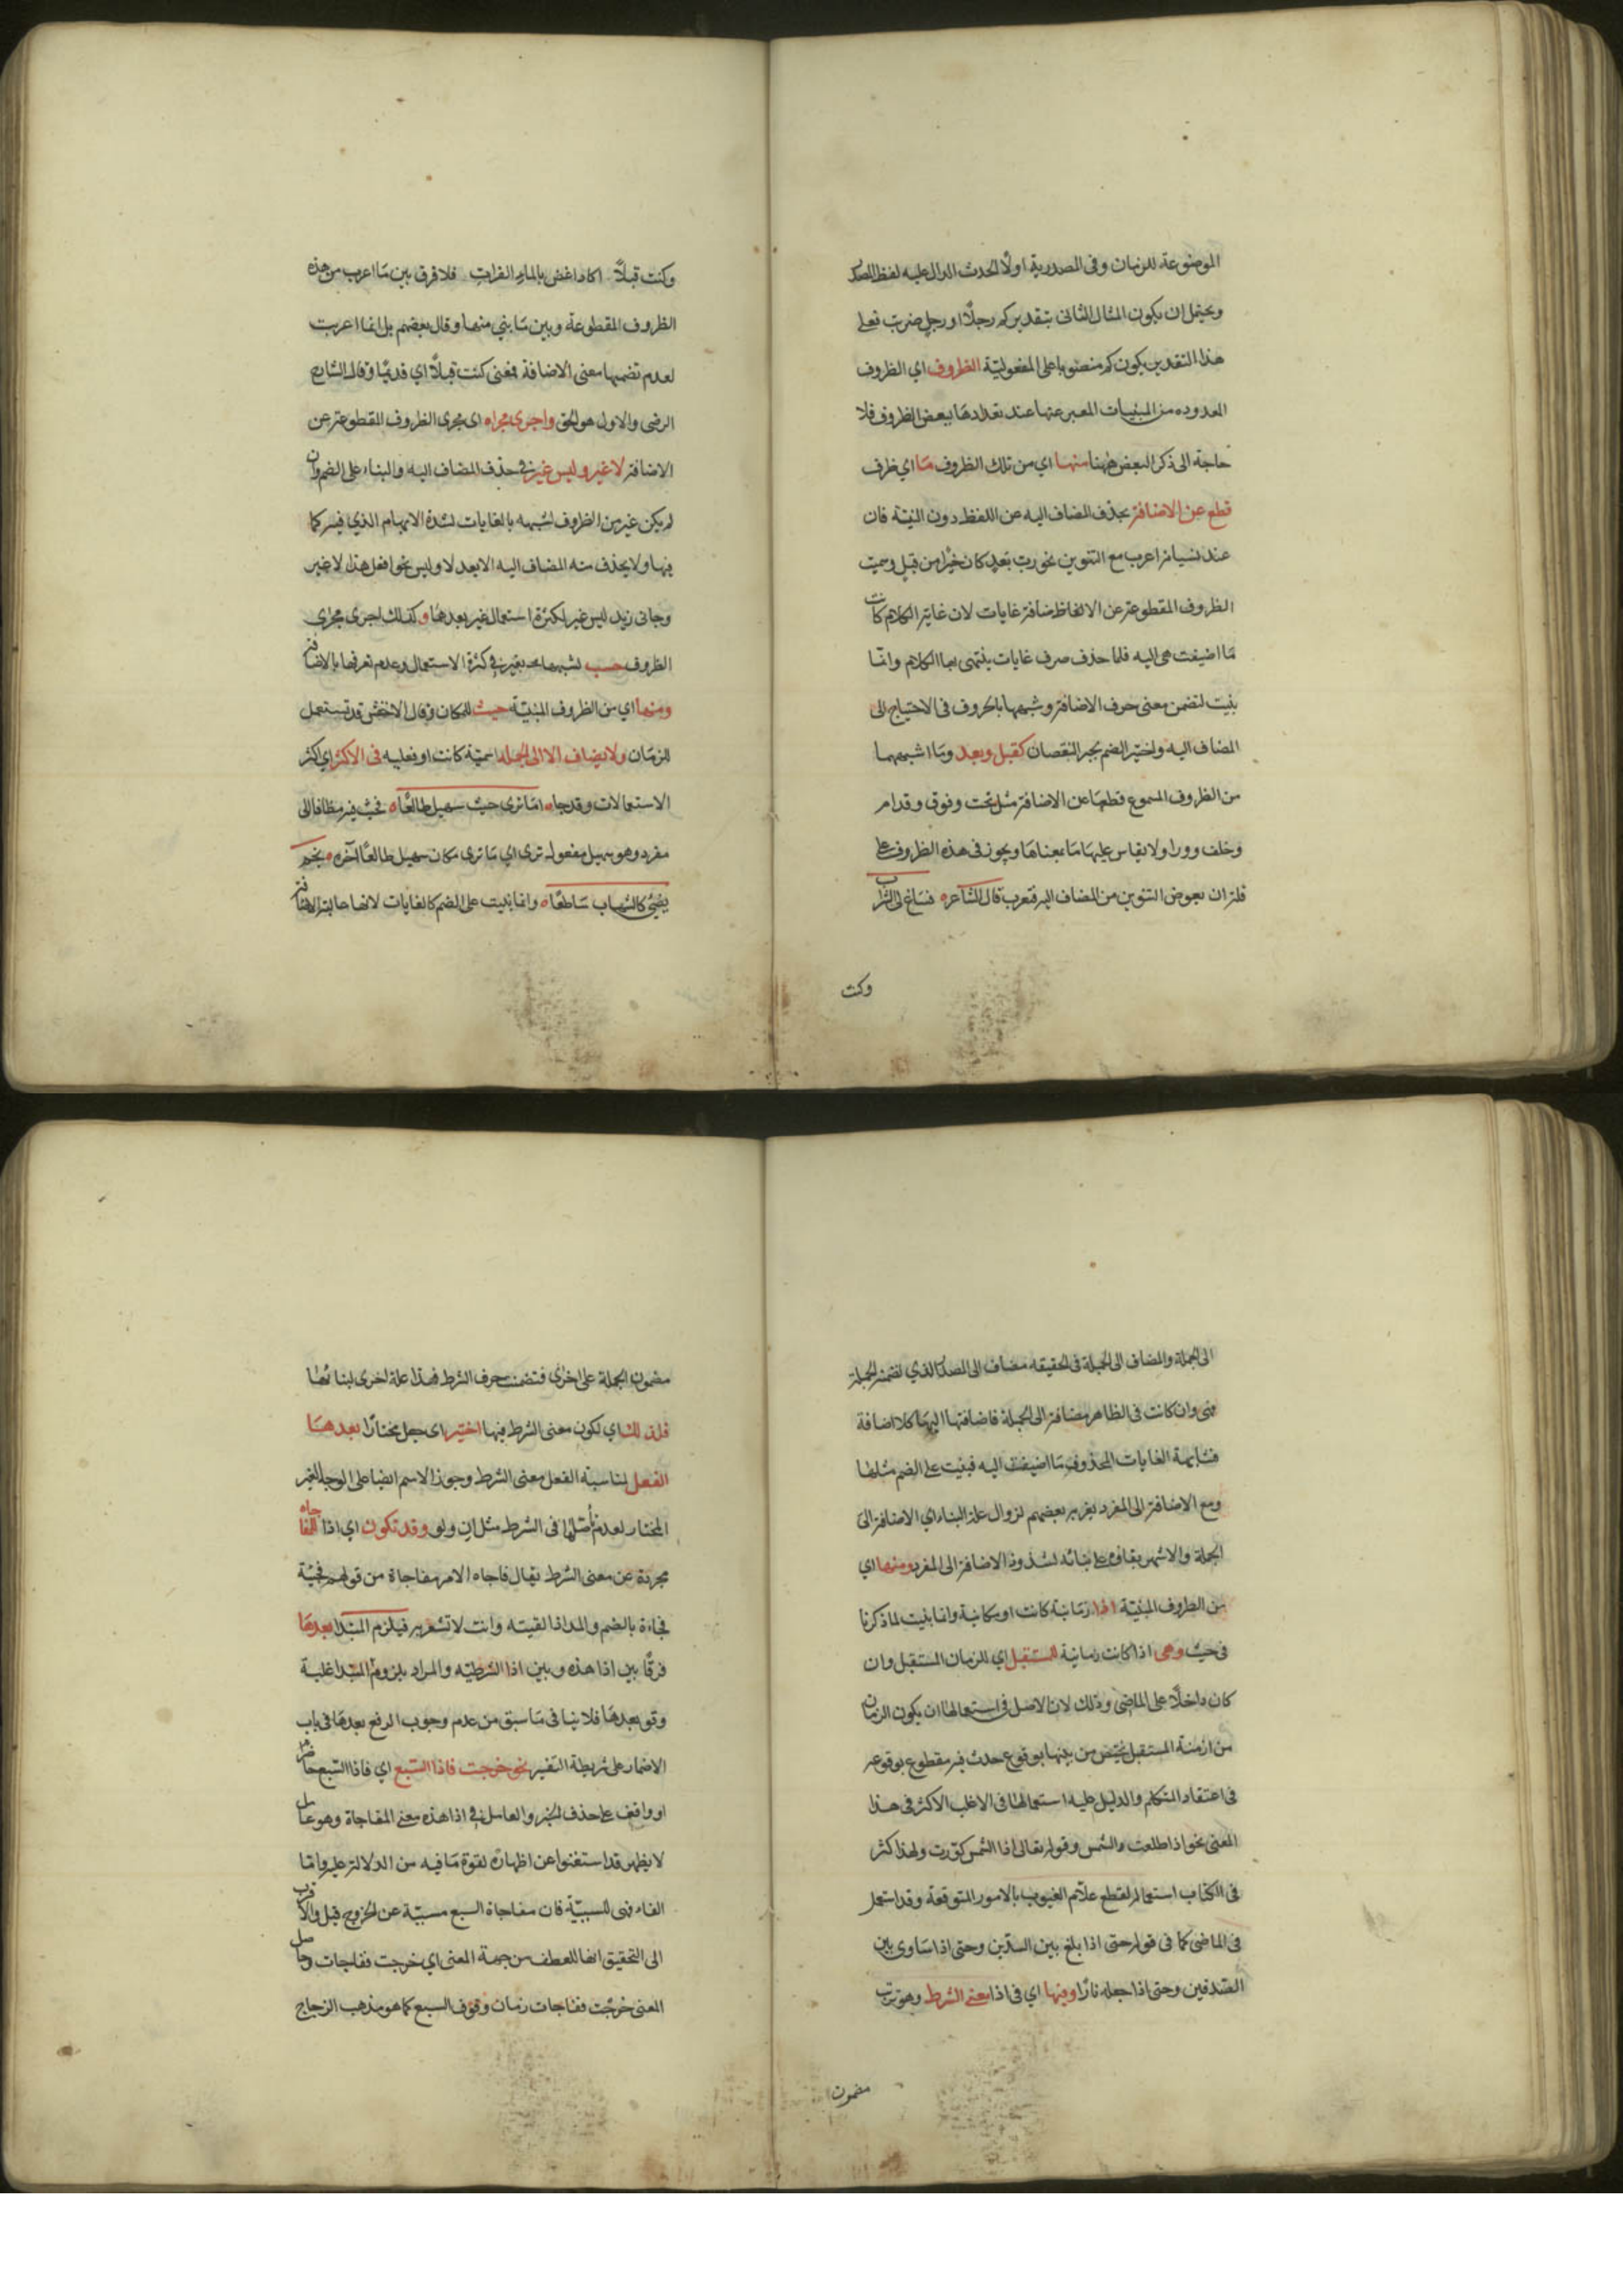 الموضوعة للزمان وفى المصدرية اولًا الحدث الدال عليه لفظ المصدر
ويحتمل ان يكون المثال الثانى بتقدير كم رجلًا او رجلٍ ضربت فعلى
هذا التقدير يكون كم منصوبا على المفعولية الظروف اي الظروف
المعدوده من المبنيات المعبر عنها عند تعدادها ببعض الظروف فلا
حاجة الى ذكر البعض ههنا منها اي من تلك الظروف مَا اي ظرف
قطع عن الاضافة بحذف المضاف اليه عن اللفظ دون النية فان
عند نسيانه اعرب مع التنوين نحو رب بَعدٍ كان خيرًا من قبلٍ وسميت
الظروف المقطوعة عن الاضافة غايات لان غاية الكلام كانت
مَا اضيفت هى اليه فلما حذف صرف غايات ينتهى بها الكلام وانما
بنيت لتضمن معنى حرف الاضافة وشبهها بالحروف فى الاحتياج الى
المضاف اليه واختير الضم لجبر النقصان كقبل وبعد ومَا اشبههما
من الظروف المسموع قطعهَا عن الاضافة مثل تحت وفوق وقدام
وخلف وورا ولا يقاس عليها مَا بمعناهَا ويجوز فى هذه الظروف على
قلة ان يعوض التنوين من المضاف اليه فتعرب قال الشاعر ه فساغ لى الشراب
وكنت
وكنت قبلًا اكاد اغض بالماء الفرات فلا فرق بين مَا اعرب من هذه
الظروف المقطوعة وبين مَا بنى منها وقال بعضهم بل انما اعربت
لعدم تضمنها معنى الاضافة فمعنى كنت قبلًا اي قديمًا وقال الشارح
الرضى والاول هو الحق واجرى مجراه اى مجرى الظروف المقطوعة عن
الاضافة لا غير وليس غير فى حذف المضاف اليه والبناء على الضم وان
لم يكن غير من الظروف لشبهه بالغايات لشدة الابهام الذي فيه كما
فيها ولا يحذف منه المضاف اليه الا بعد لا وليس نحو افعل هذا لا غير
وجانى زيد ليس غير لكثرة استعمال غير بعدهمَا و كذلك اجرى مجرى
الظروف حسب لشبهها بغير فى كثرة الاستعمال وعدم تعرفها بالاضافة
ومنها اي من الظروف المبنية حيث للمكان وقال الاخفش قد تستعمل
للزمَان ولا يضاف الا الى الجملة اسمية كانت او فعليه فى الاكثر اي اكثر
الاستعمالات وقد جاء امَا ترى حيث سهيل طالعًا ه فحيث فيه مضاف الى
مفرد وهو سهيل مفعول ترى اي مَا ترى مكان سهيل طالعًا آخره ه نجم
يضئ كالشهاب سَاطعًا ه وانما بنيت على الضم كالغايات لانها غالبة الاضافة
الى الجملة والمضاف الى الجملة فى الحقيقه مضاف الى المصدر الذي تضمنته الجملة
فهى وان كانت فى الظاهر مضافة الى الجملة فاضافتها اليهَا كلا اضافة
فشابهت الغايات المحذوف مَا اضيفت اليه فبنيت على الضم مثلها
ومع الاضافة الى المفرد يعربه بعضهم لزوال علة البناء اي الاضافة الى
الجملة والاشهر بقاؤه على بنائه لشذوذ الاضافة الى المفرد ومنها اي
من الظروف المبنية اذا زمَانية كانت او مكانية وانما بنيت لما ذكرنا
فى حيث وهى اذا كانت زمانية للمستقبل اي للزمان المستقبل وان
كان داخلًا على الماضى وذلك لان الاصل فى استعمالها ان يكون الزمان
من ازمنة المستقبل مختص من بينها بوقوع حدث فيه مقطوع بوقوعه
فى اعتقاد المتكلم والدليل عليه استعمالها فى الاغلب الاكثر فى هذا
المعنى نحو اذا طلعت الشمس وقوله تعالى اذا الشمس كورت ولهذا كثر
فى الكتاب استعماله لقطع علّام الغيوب بالامور المتوقعة وقد استعمل
فى الماضى كما فى قوله حتى اذا بلغ بين السدين وحتى اذا سَاوى بين
الصدفين وحتى اذا جعله نارًا وفيها اي فى اذا معنى الشرط وهو ترتب
مضمون
مضمون الجملة على اخرى فتضمنت حرف الشرط فهذا علة اخرى لبنائها
فلذلك اي لكون معنى الشرط فيها اختير اى جعل مختارًا بعدهَا
الفعل لمناسبة الفعل معنى الشرط وجوز الاسم ايضا على الوجه الغير
المختار لعدم تأصّلها فى الشرط مثل ان ولو وقد تكون اي اذا للمفاجاه
مجردة عن معنى الشرط يقال فاجاه الامر مفاجاة من قولهم فجئة
فجاءة بالضم والمد اذا لقيته وانت لا تشعر به فيلزم المبتدا بعدهَا
فرقًا بين اذا هذه وبين اذا الشرطيه والمراد بلزوم المبتدا غلبة
وقوعه بعدهَا فلا ينافى مَا سبق من عدم وجوب الرفع بعدهَا فى باب
الاضمار على شريطة التفسير نحو خرجت فاذا السبع اي فاذا السبع حاضر
او واقف على حذف الخبر والعامل فى اذا هذه معنى المفاجاة وهو عامل
لا يظهر قد استغنوا عن اظهاره لقوة مَا فيه من الدلالة عليه وامّا
الفاء فهى للسببيّة فان مفاجاة السبع مسببة عن الخروج قيل والاقرب
الى التحقيق انها للعطف من جهة المعنى اي خرجت ففاجات وحاصل
المعنى خرجت ففاجات زمَان وقوف السبع كما هو مذهب الزجاج